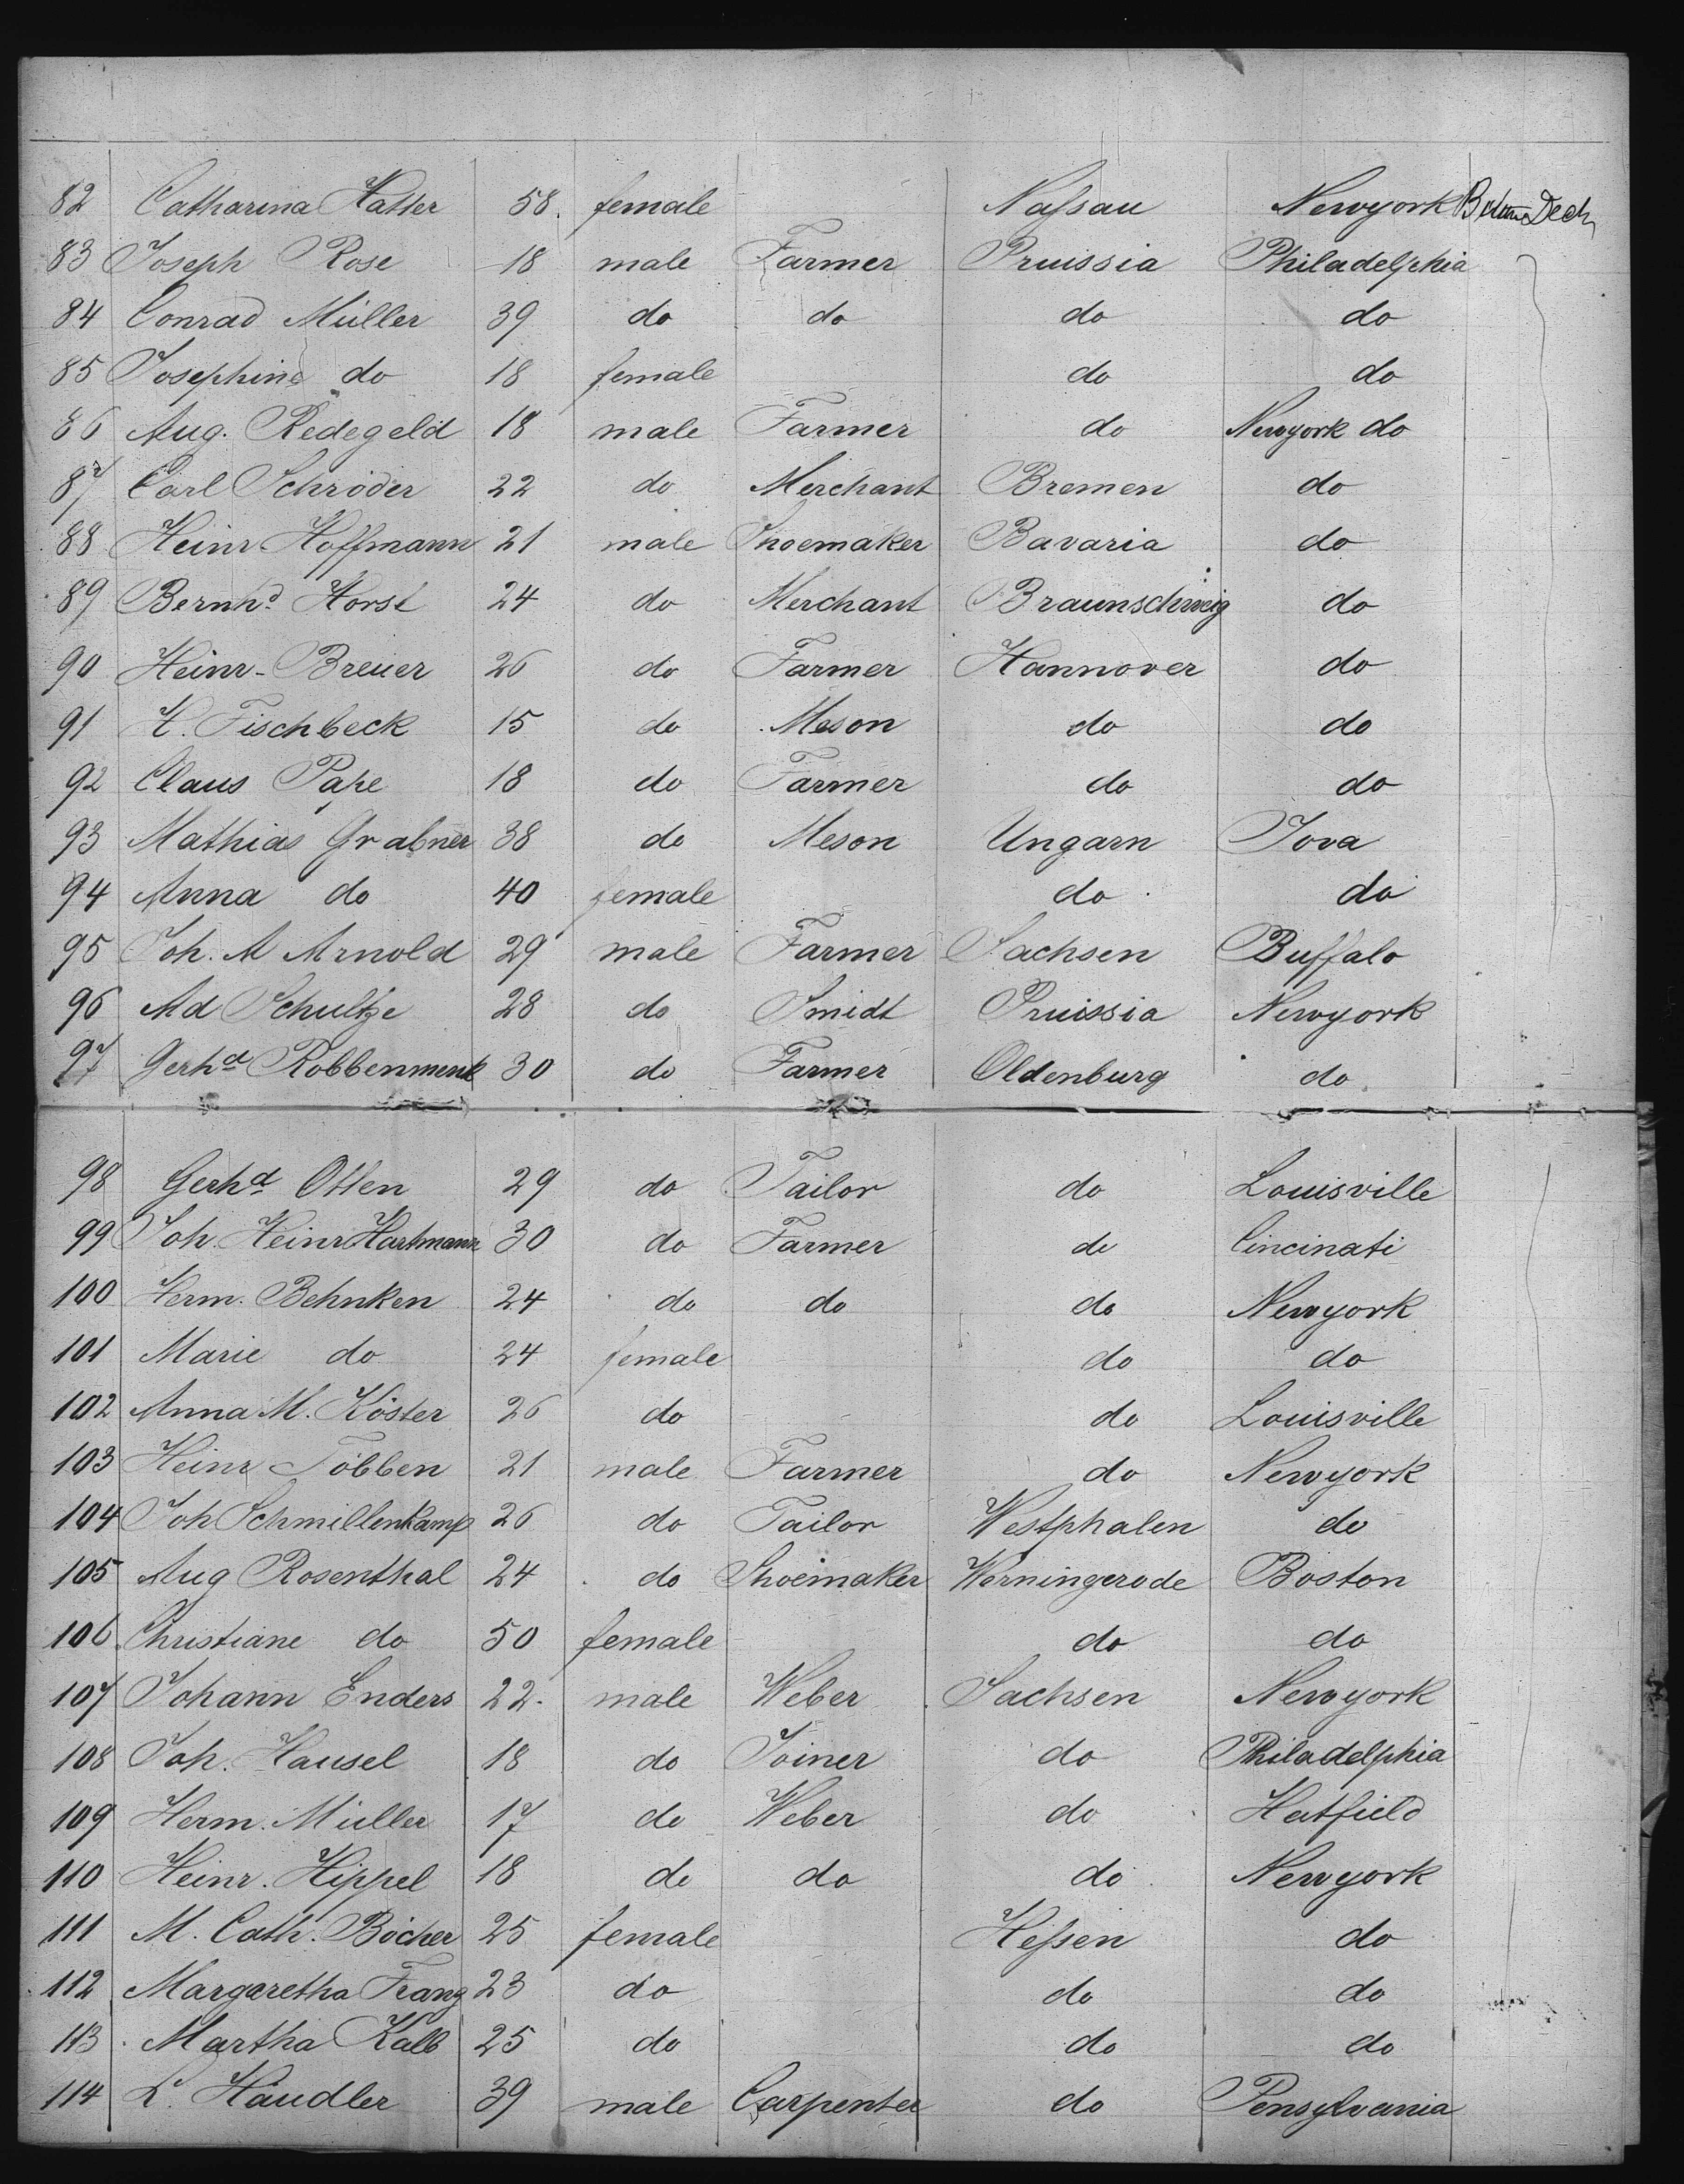 82 Catharina Hatter 58. female Naſsau Newyork Dech
83 Joseph Rose 18 male Farmer Pruissia Philadelphia
84 Conrad Müller 39 do do do do
85 Josephine do 18 female do do
86 Aug. Redegeld 18 male Farmer do Newyork do
87 Carl Schröder 22 do Merchant Bremen do
88 Heinr. Hoffmann 21 male Shoemaker Bavaria do
89 Bernhd Horst 24 do Merchant Braunschweig do
90 Heinr. Breuer 26 do Farmer Hannover do
91 H. Fischbeck 15 do Meson do do
92 Claus Pape 18 do Farmer do do
93 Mathias Grabner 38 do Meson Ungarn Iova
94 Anna do 40 female do do
95 Joh. A Arnold 29 male Farmer Sachsen Buffalo
96 Ad Schultze 28 do Smidt Pruissia Newyork
97 Gerhd Robbenmenk 30 do Farmer Oldenburg do
98 Gerhd Otten 29 do Tailor do Louisville
99 Joh. Heinr Hartmann 30 do Farmer do Cincinati
100 Herm. Behnken 24 do do do Newyork
101 Marie do 24 female do do
102 Anna M. Köster 26 do do Louisville
103 Heinr Többen 21 male Farmer do Newyork
104 Joh Schmillenkamp 26 do Tailor Westphalen do
105 Aug Rosenthal 24 do Shoemaker Werningerode Boston
106 Christiane do 50 female do do
107 Johann Enders 22. male Weber Sachsen Newyork
108 Joh. Hausel 18 do Joiner do Philadelphia
109 Herm. Müller 17 do Weber do Hatfield
110 Heinr. Hippel 18 do do do Newyork
111 M. Cath. Böcher 25 female Heſsen do
112 Margaretha Franz 23 do do do
113 Martha Kalb 25 do do do
114 L. Häudler 39 male Carpenter do Pensylvania